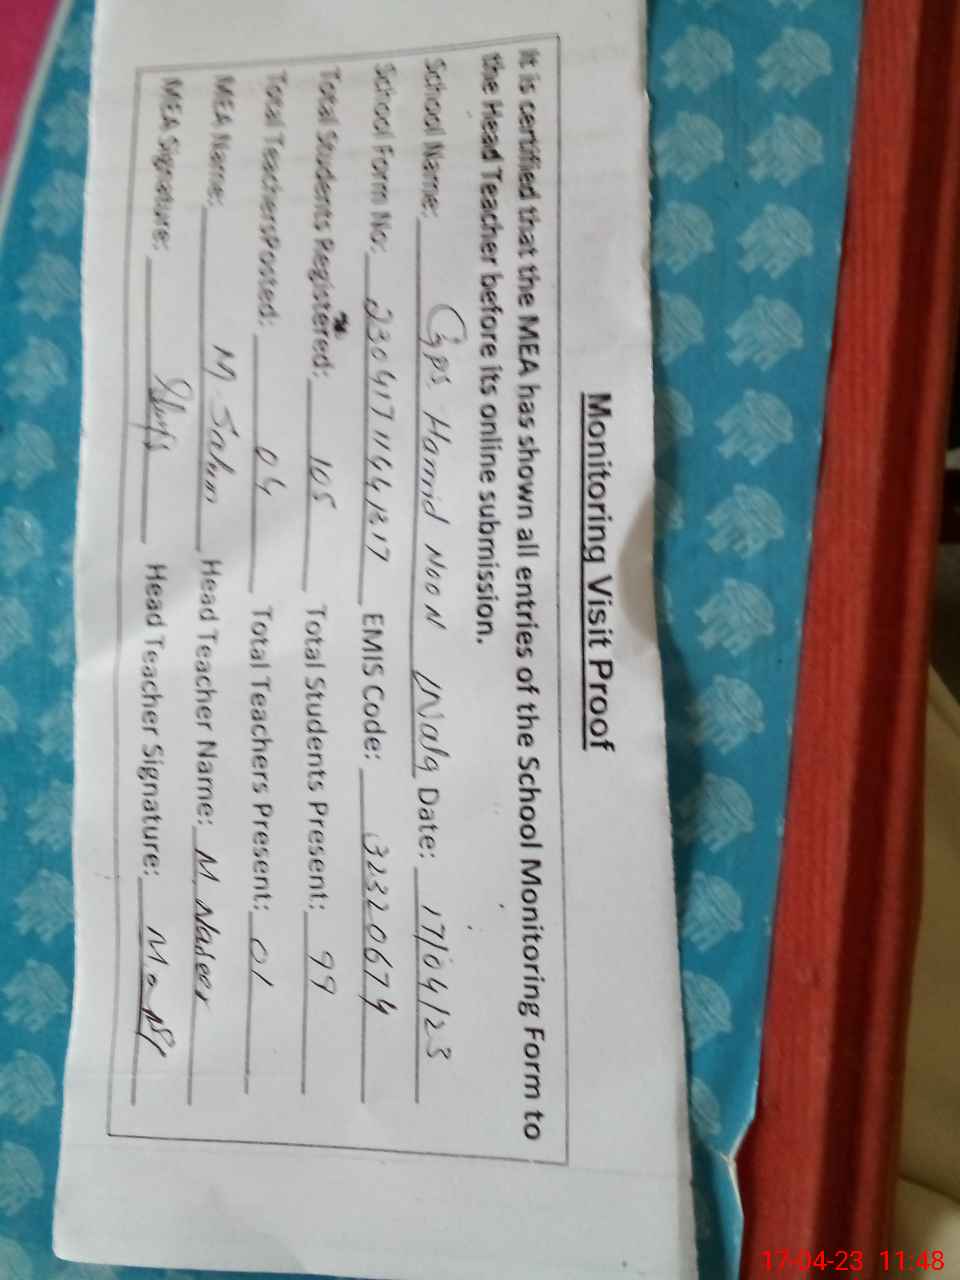 Monitoring Visit Proof
It is certified that the MEA has shown all entries of the School Monitoring Form to
the Head Teacher before its online submission.
School Name: Gps Hamid Noon Wala Date: 17/04/23
School Form No: EMIS Code: 32320674
Total Students Registered: 105 Total Students Present: 99
Total TeachersPosted: 04 Total Teachers Present: 01
MEA Name: M Salim Head Teacher Name: M. Nadeer
MEA Signature: Head Teacher Signature:
17-04-23 11:48